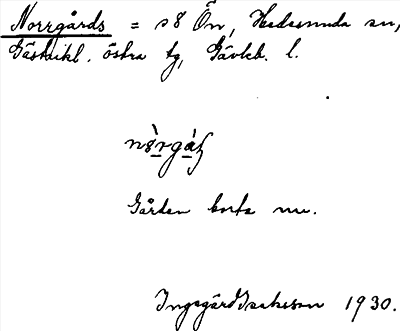 Norrgårds = s8 Ön, Hedesunda sn,
Gästrikl. östra tg, Gävleb. l.
Gården borta nu.
Ingegärd Isaksson 1930.